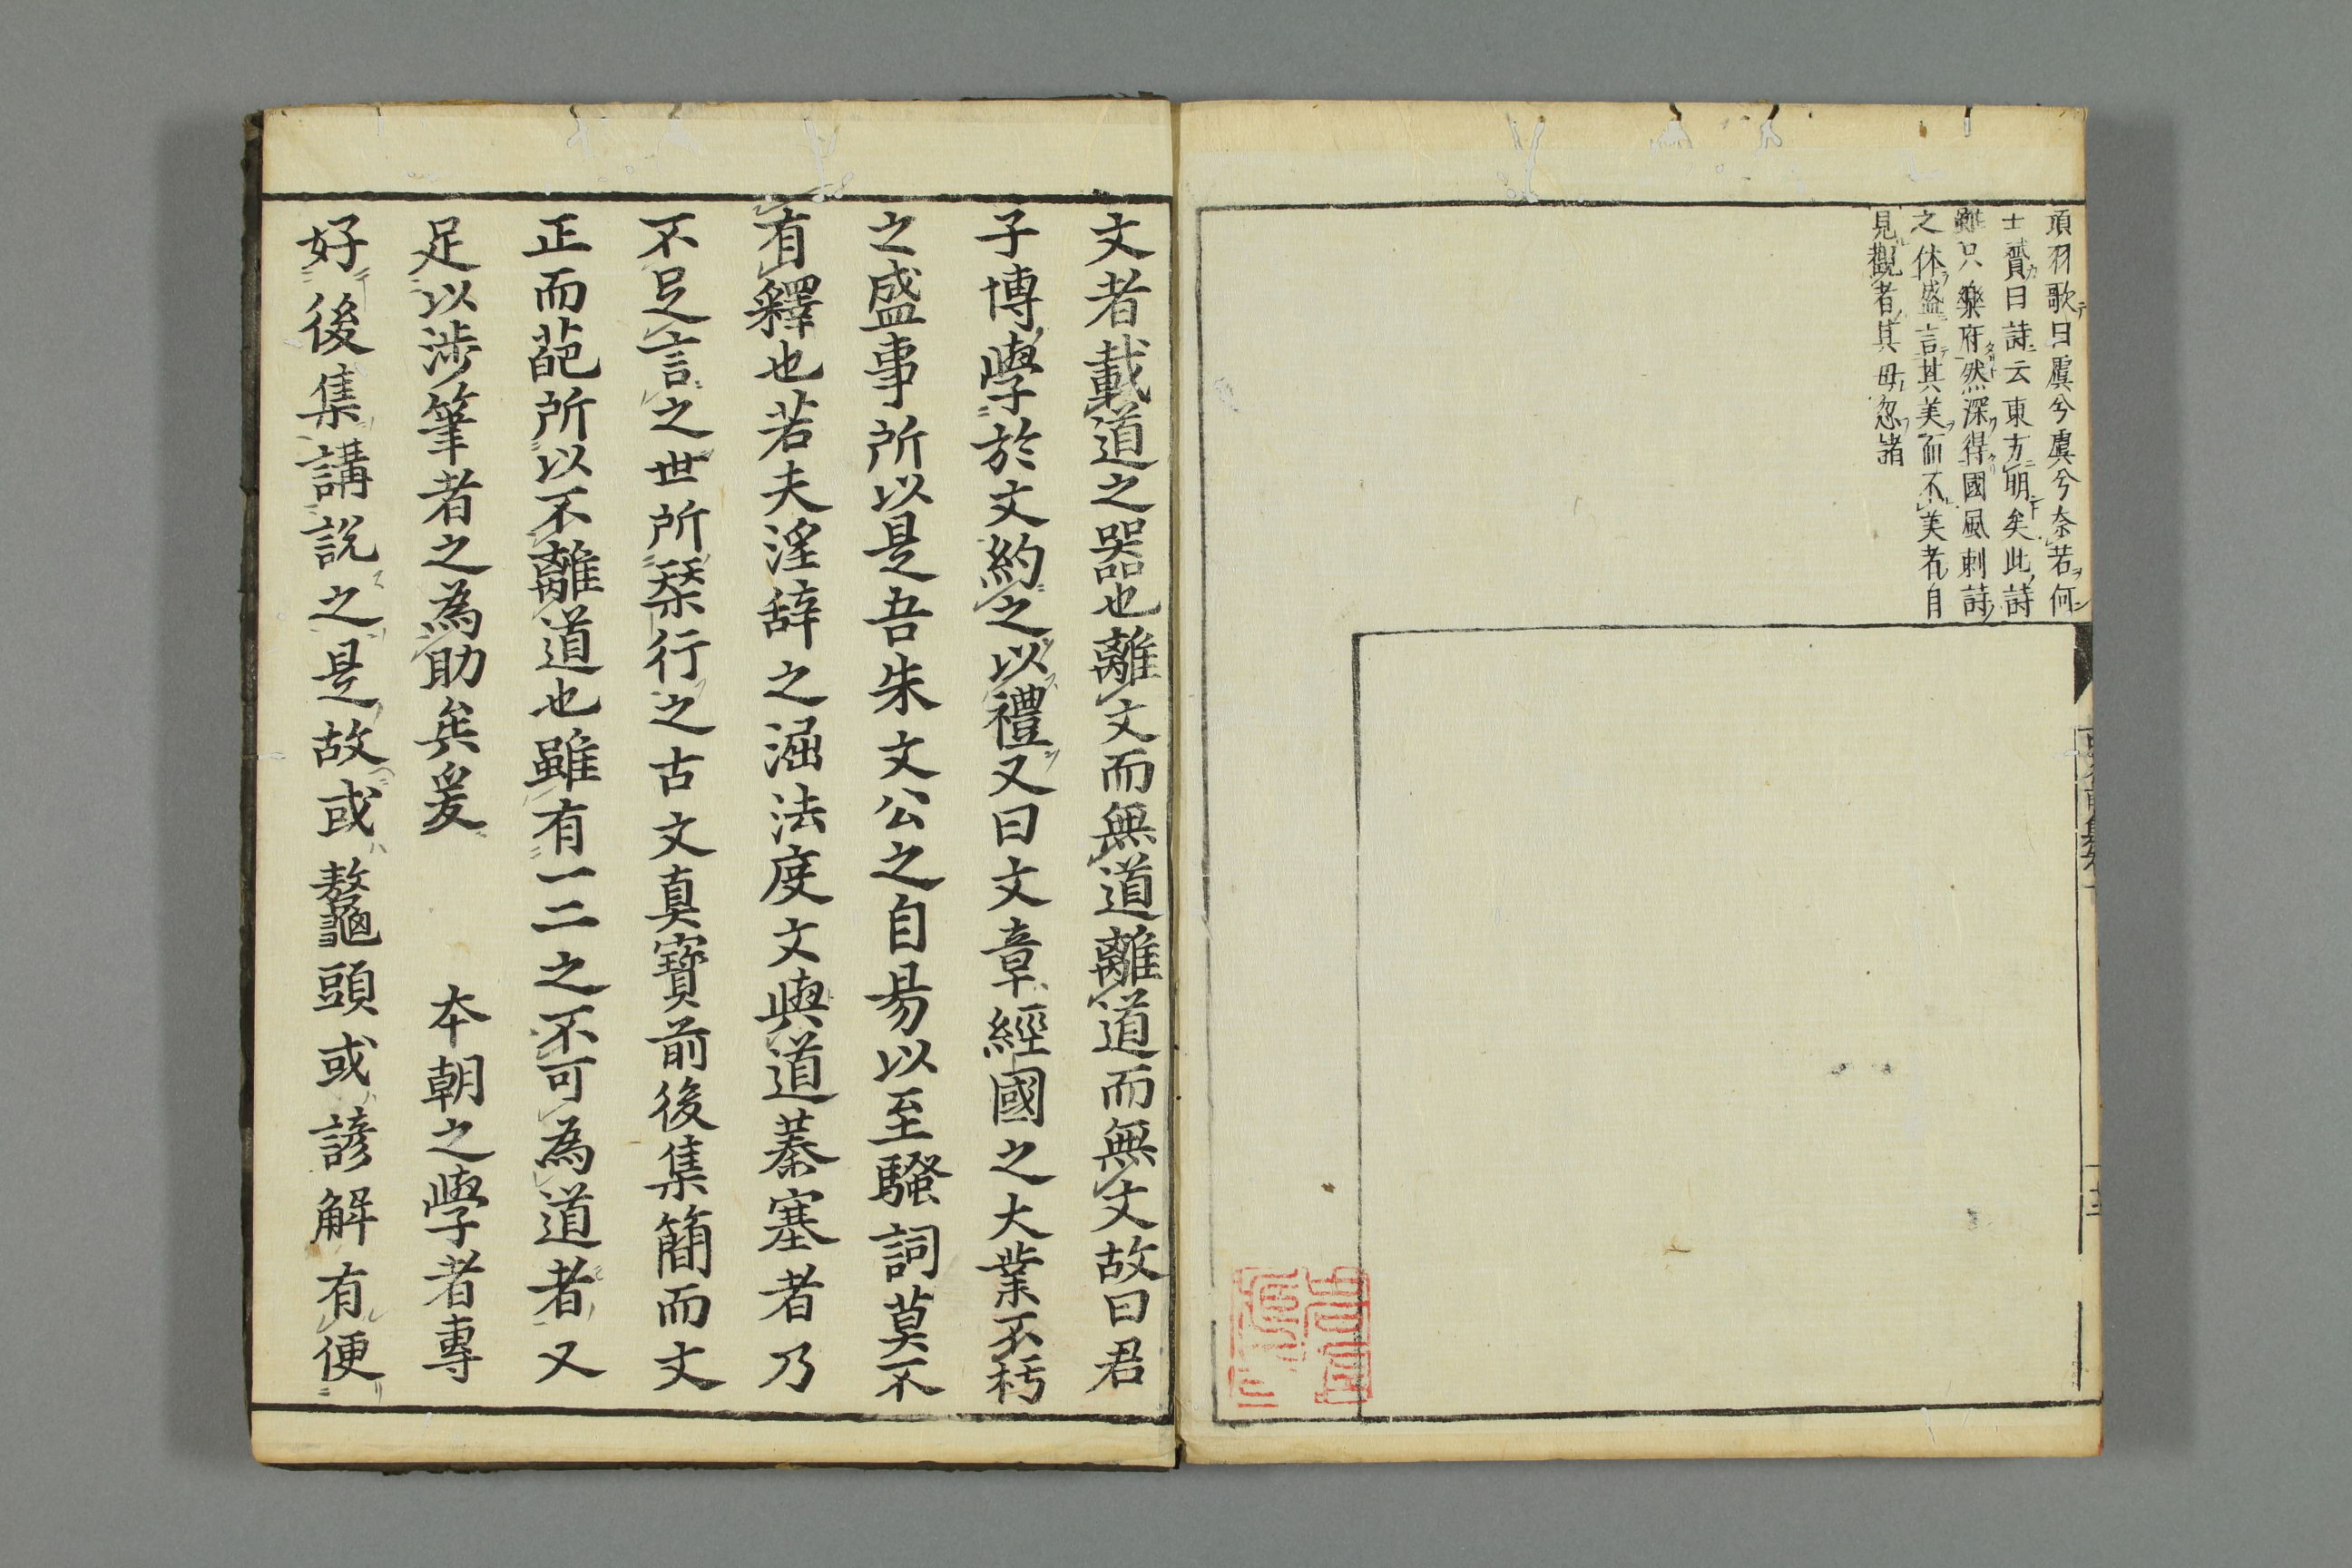 項羽歌曰虞兮虞兮奈若何
士贇曰詩云東方明矣此詩
雖只樂府然深得國風刺詩
之体盛言其美而不美者自
見觀者其毋忽諸
文者載道之器也離文而無道離道而無文故曰君
子博學於文約之以禮又曰文章經國之大業不朽
之盛事所以是吾朱文公之自易以至騷詞莫不
有釋也若夫淫辞之溺法度文與道蓁塞者乃
不足言之世所栞行之古文真寶前後集簡而文
正而葩所以不離道也雖有一二之不可為道者又
足以涉筆者之為助矣爰 本朝之學者專
好後集講説之是故或鼇頭或諺解有便